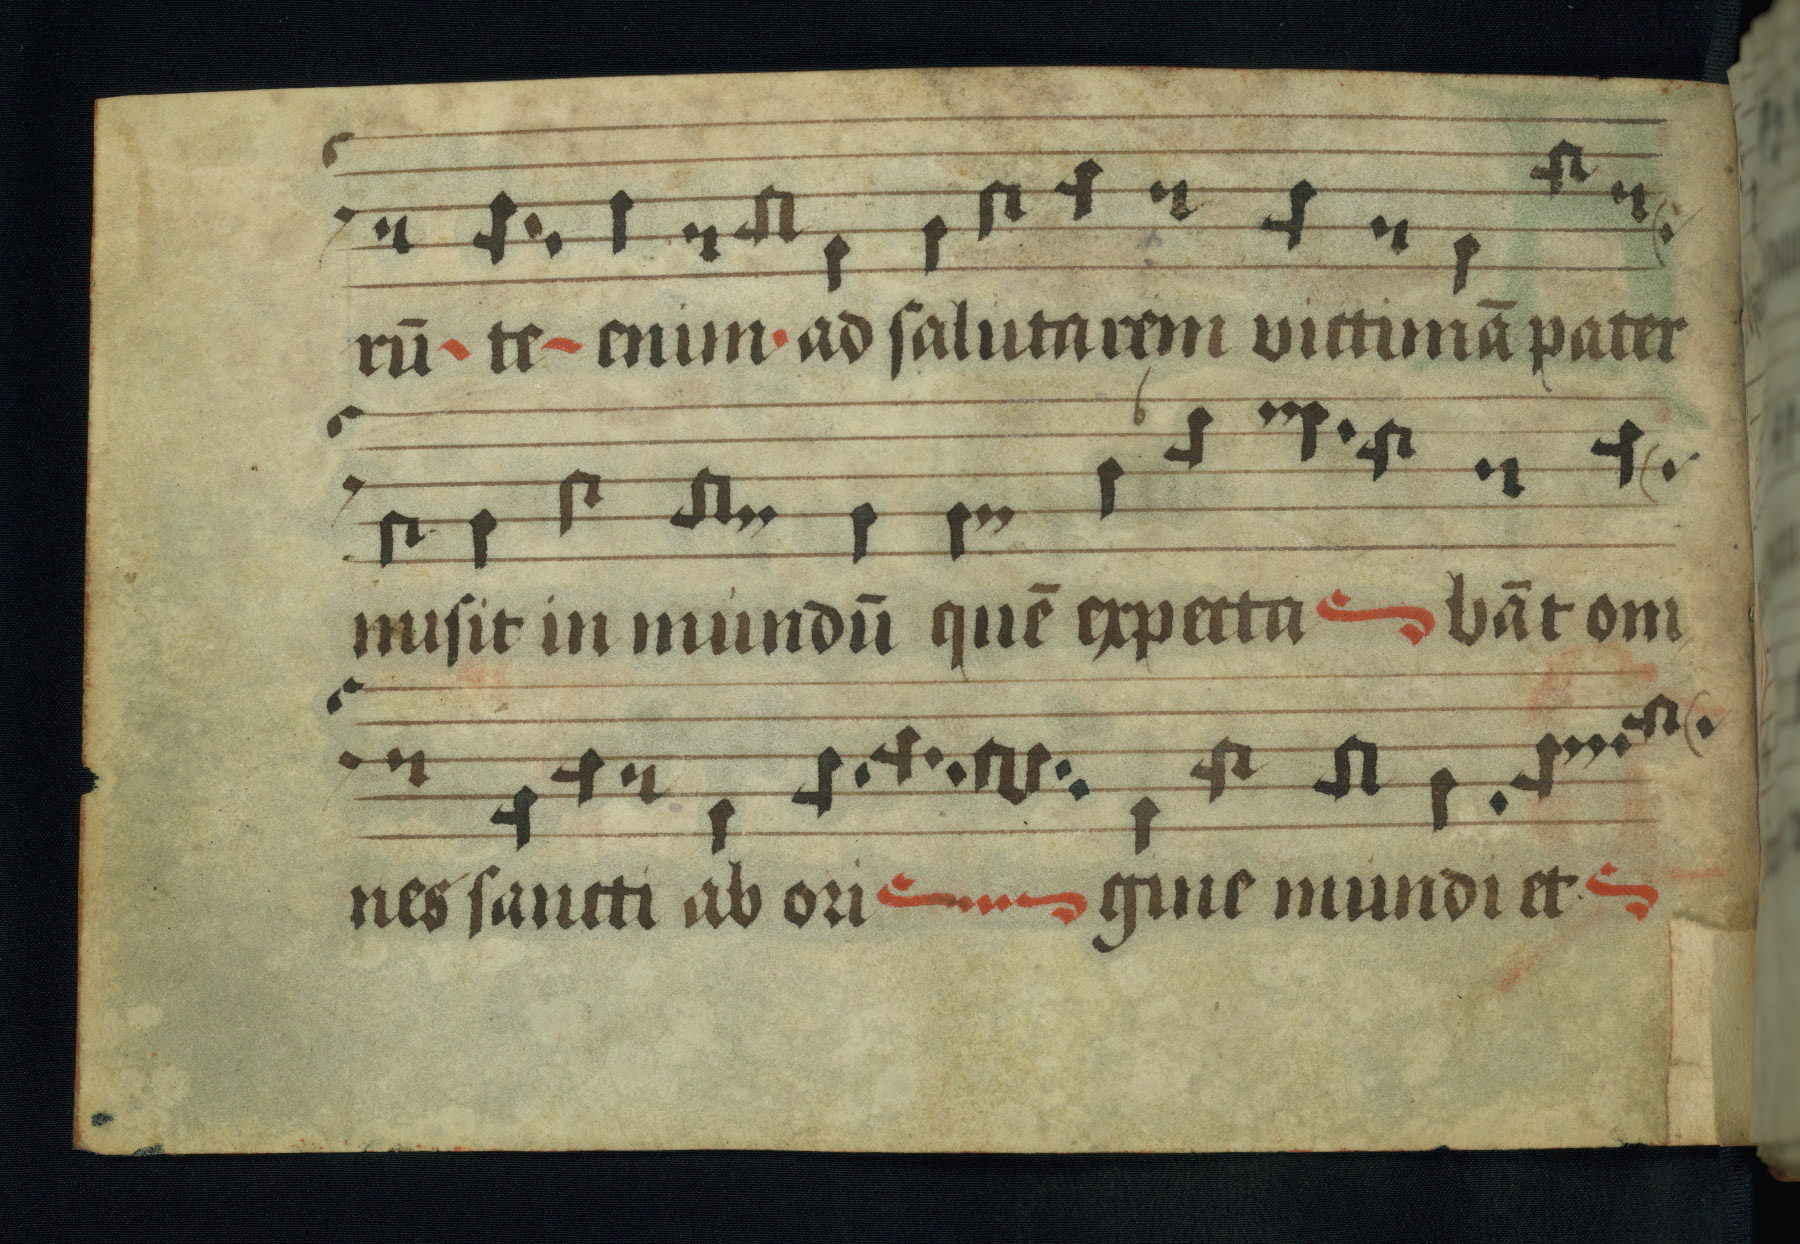 rū te enim ad salutarem victimā pater
misit in mundū quē expecta bāt om
nes sancti ab ori gine mundi et